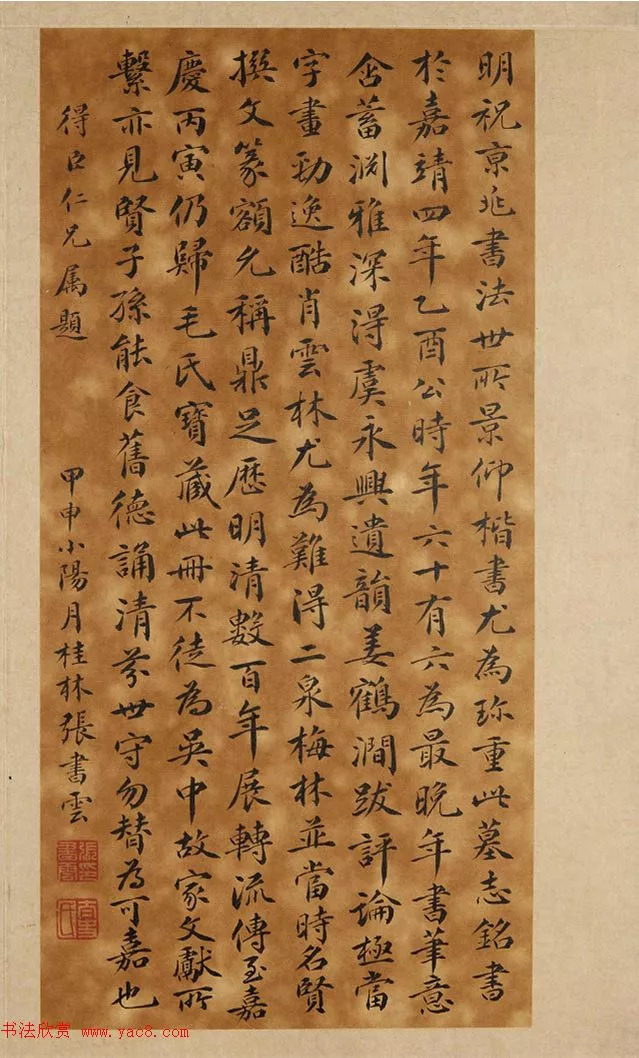 明祝京兆書法世所景仰楷書尤為珎重此墓志銘書
於嘉靖四年乙酉公時年六十有六為最晚年書筆意
含蓄渊雅深得虞永興遺韻姜鶴澗跋評論極當
字畫勁逸酷肖雲林尤為難得二泉梅林並當時名賢
撰文篆額允稱鼎足歷明清數百年展轉流傳至嘉
慶丙寅仍歸毛氏寶藏此冊不徒為吳中故家文獻所
繫亦見賢子孫能食舊德誦清芬世守勿替為可嘉也
得臣仁兄属題
甲申小陽月桂林張書雲
书法欣赏 www.yac8.com